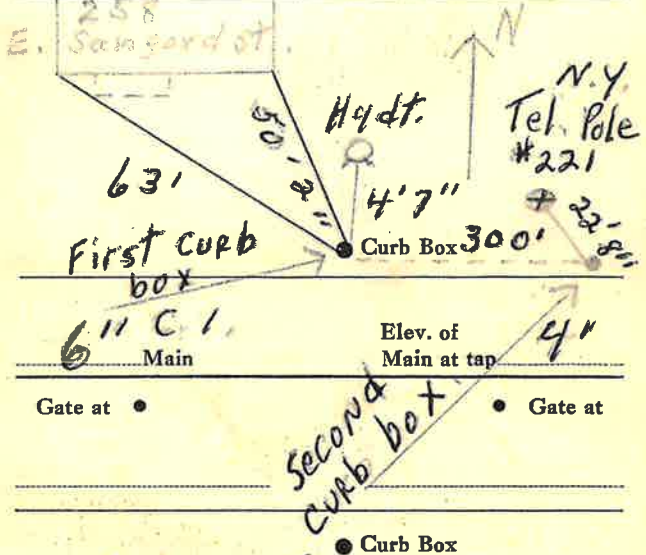 E.
258
Sanford st.
Hydt.
N.Y.
Tel. Pole
#221
50' 2"
63'
4'7"
22'8"
First Curb
box
Curb Box 300'
6" C I.
Main
Elev. of
Main at tap
4"
Gate at
Gate at
Second
Curb box
Curb Box
N